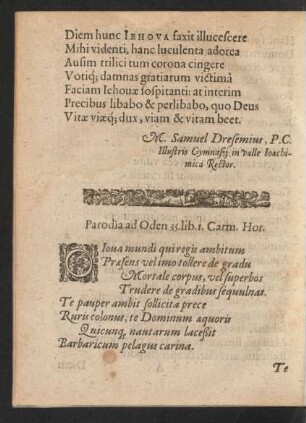 Diem hunc IEHOVA faxit illucescere
Mihi videnti, hanc luculenta adorea
Ausim trilici tum corona cingere
Votiq; damnas gratiarum victimâ
Faciam Iehouæ sospitanti: at interim
Precibus libabo & perlibabo, quo Deus
Vitæ viæq; dux, viam & vitam beet.
M. Samuel Dresemius, P.C.
Illustris Gymnasij in Valle Ioachi-
micâ Rector.
Parodia ad Oden 35. lib. 1. Carm. Hor.
O Ioua mundi qui regis ambitum
Præsens vel imo tollere de gradu
Mortale corpus, vel superbos
Trudere de gradibus sequulnas.
Te pauper ambit sollicita prece
Ruris colonus, te Dominum æquoris
Quicunq; nautarum lacessit
Barbaricum pelagus carina.
Te